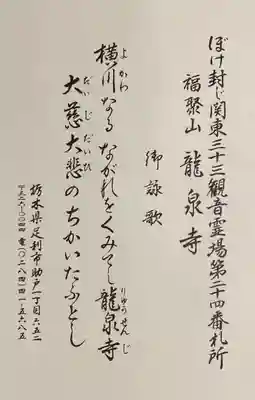 ぼけ封じ関東三十三観音霊場第二十四番札所
福聚山 龍泉寺
御詠歌
よかわ りゅうせんじ
横川なる ながれをくみて 龍泉寺
だいじだいひ
大慈大悲のちかいたふとし
栃木県足利市助戸一丁目六五二
〒三二六-〇〇四四 電(〇二八四)四一-五六八五